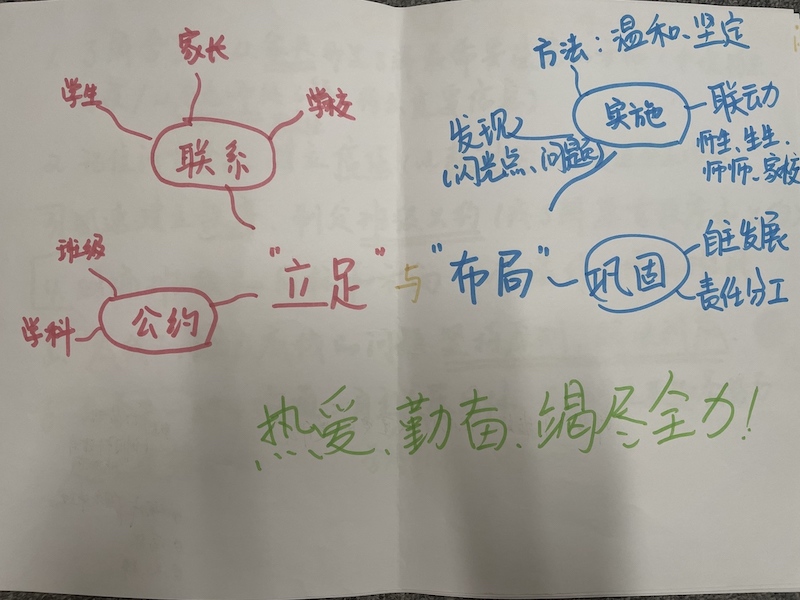 家长
学生
学校
联系
班级
学科
公约
"立足"与"布局"
方法：温和、坚定
实施
联动
师生、生生、
师师、家校
发现
(闪光点、问题)
巩固
自主发展
责任分工
热爱、勤奋、竭尽全力！